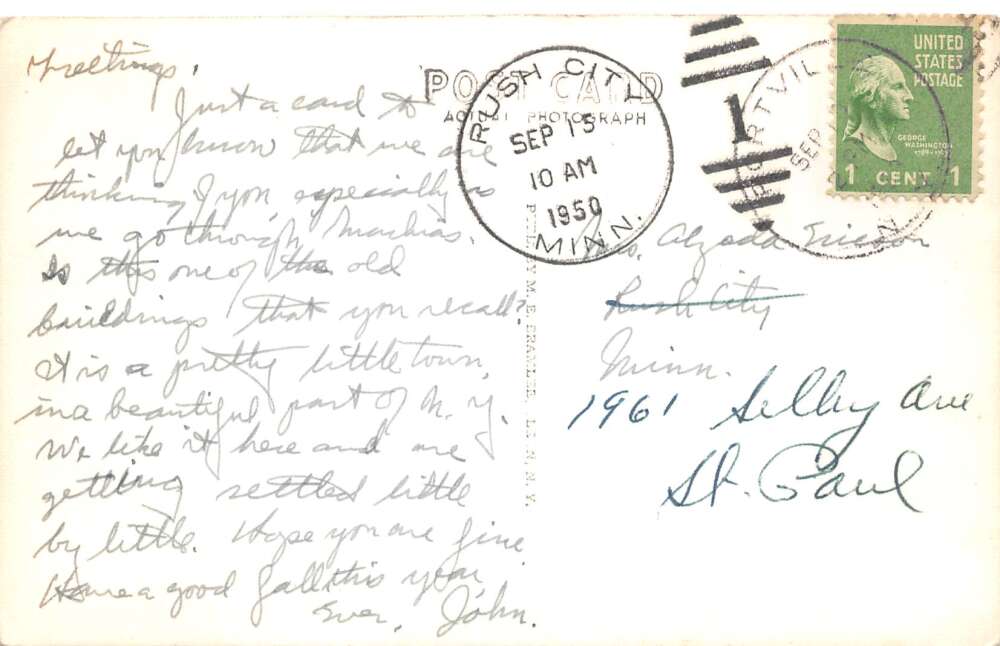 Greetings!
Just a card to
let you know that we are
thinking of you especially as
we go through Machias.
Is this one of the old
buildings that you recall?
It is a pretty little town,
in a beautiful part of N. Y.
We like it here and are
getting settled little
by little. Hope you are fine
Have a good fall this year
Ever, John.
POST CARD
PHOTOGRAPH
RUSH CITY
SEP 15
10 AM
1950
MINN.
1
PORTVIL
SEP
N
UNITED
STATES
POSTAGE
GEORGE
WASHINGTON
1 CENT 1
Mrs. Alzada Ericson
Rush City
Minn.
1961 Selby Ave
St. Paul